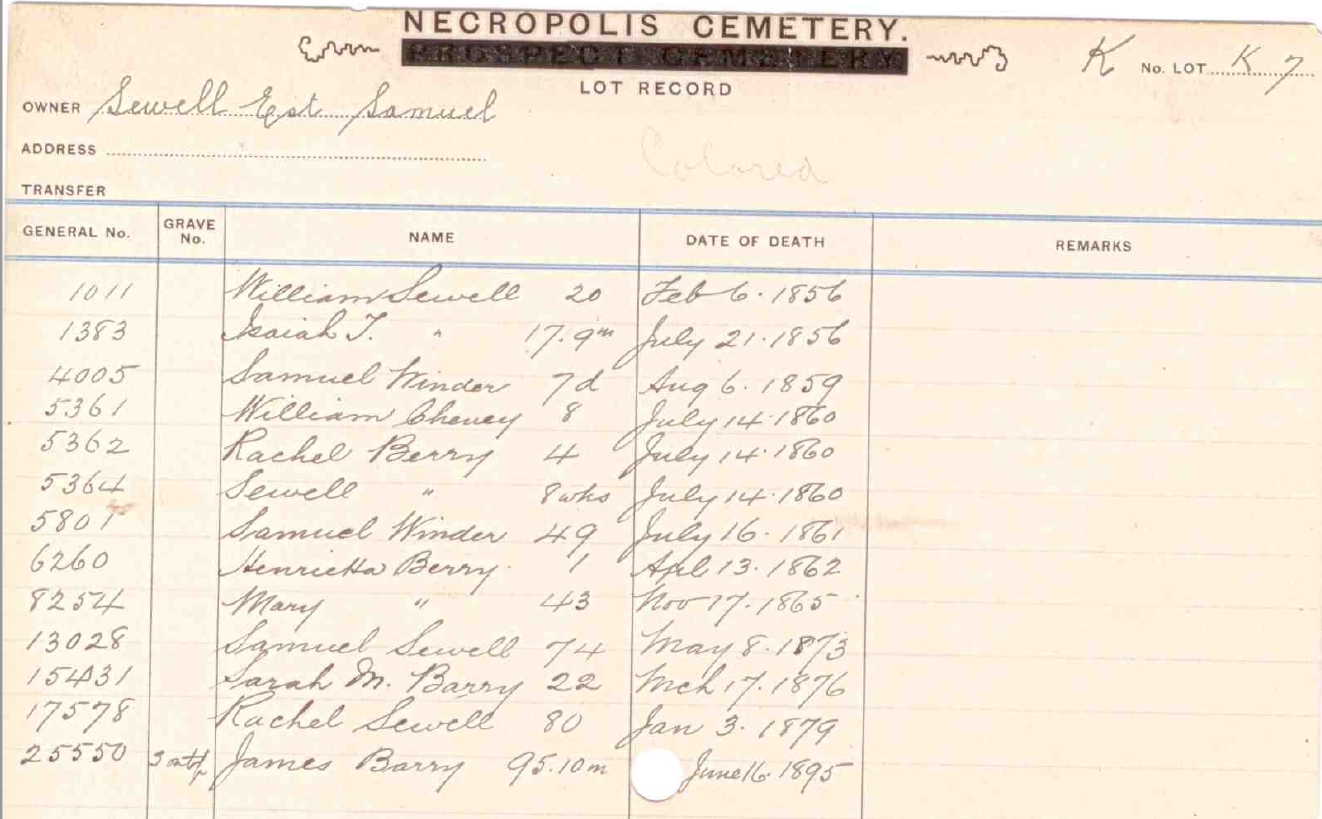 NECROPOLIS CEMETERY.
PROSPECT CEMETERY
K No. LOT K 7
LOT RECORD
OWNER Sewell Est Samuel
ADDRESS
Colored
TRANSFER
GENERAL No. GRAVE No. NAME DATE OF DEATH REMARKS
1011 William Sewell 20 Feb 6. 1856
1383 Isaiah T. " 17. 9m July 21. 1856
4005 Samuel Winder 7d Aug 6. 1859
5361 William 8 July 14. 1860
5362 Rachel Berry 4 July 14. 1860
5364 Sewell " 8 wks July 14. 1860
5801 Samuel Winder 49 July 16. 1861
6260 Henrietta Berry 1 Apl 13. 1862
8254 Mary " 43 Nov 17. 1865
13028 Samuel Sewell 74 May 8. 1873
15431 Sarah M. Barry 22 Mch 17. 1876
17578 Rachel Sewell 80 Jan 3. 1879
25550 James Barry 95. 10m June 16. 1895